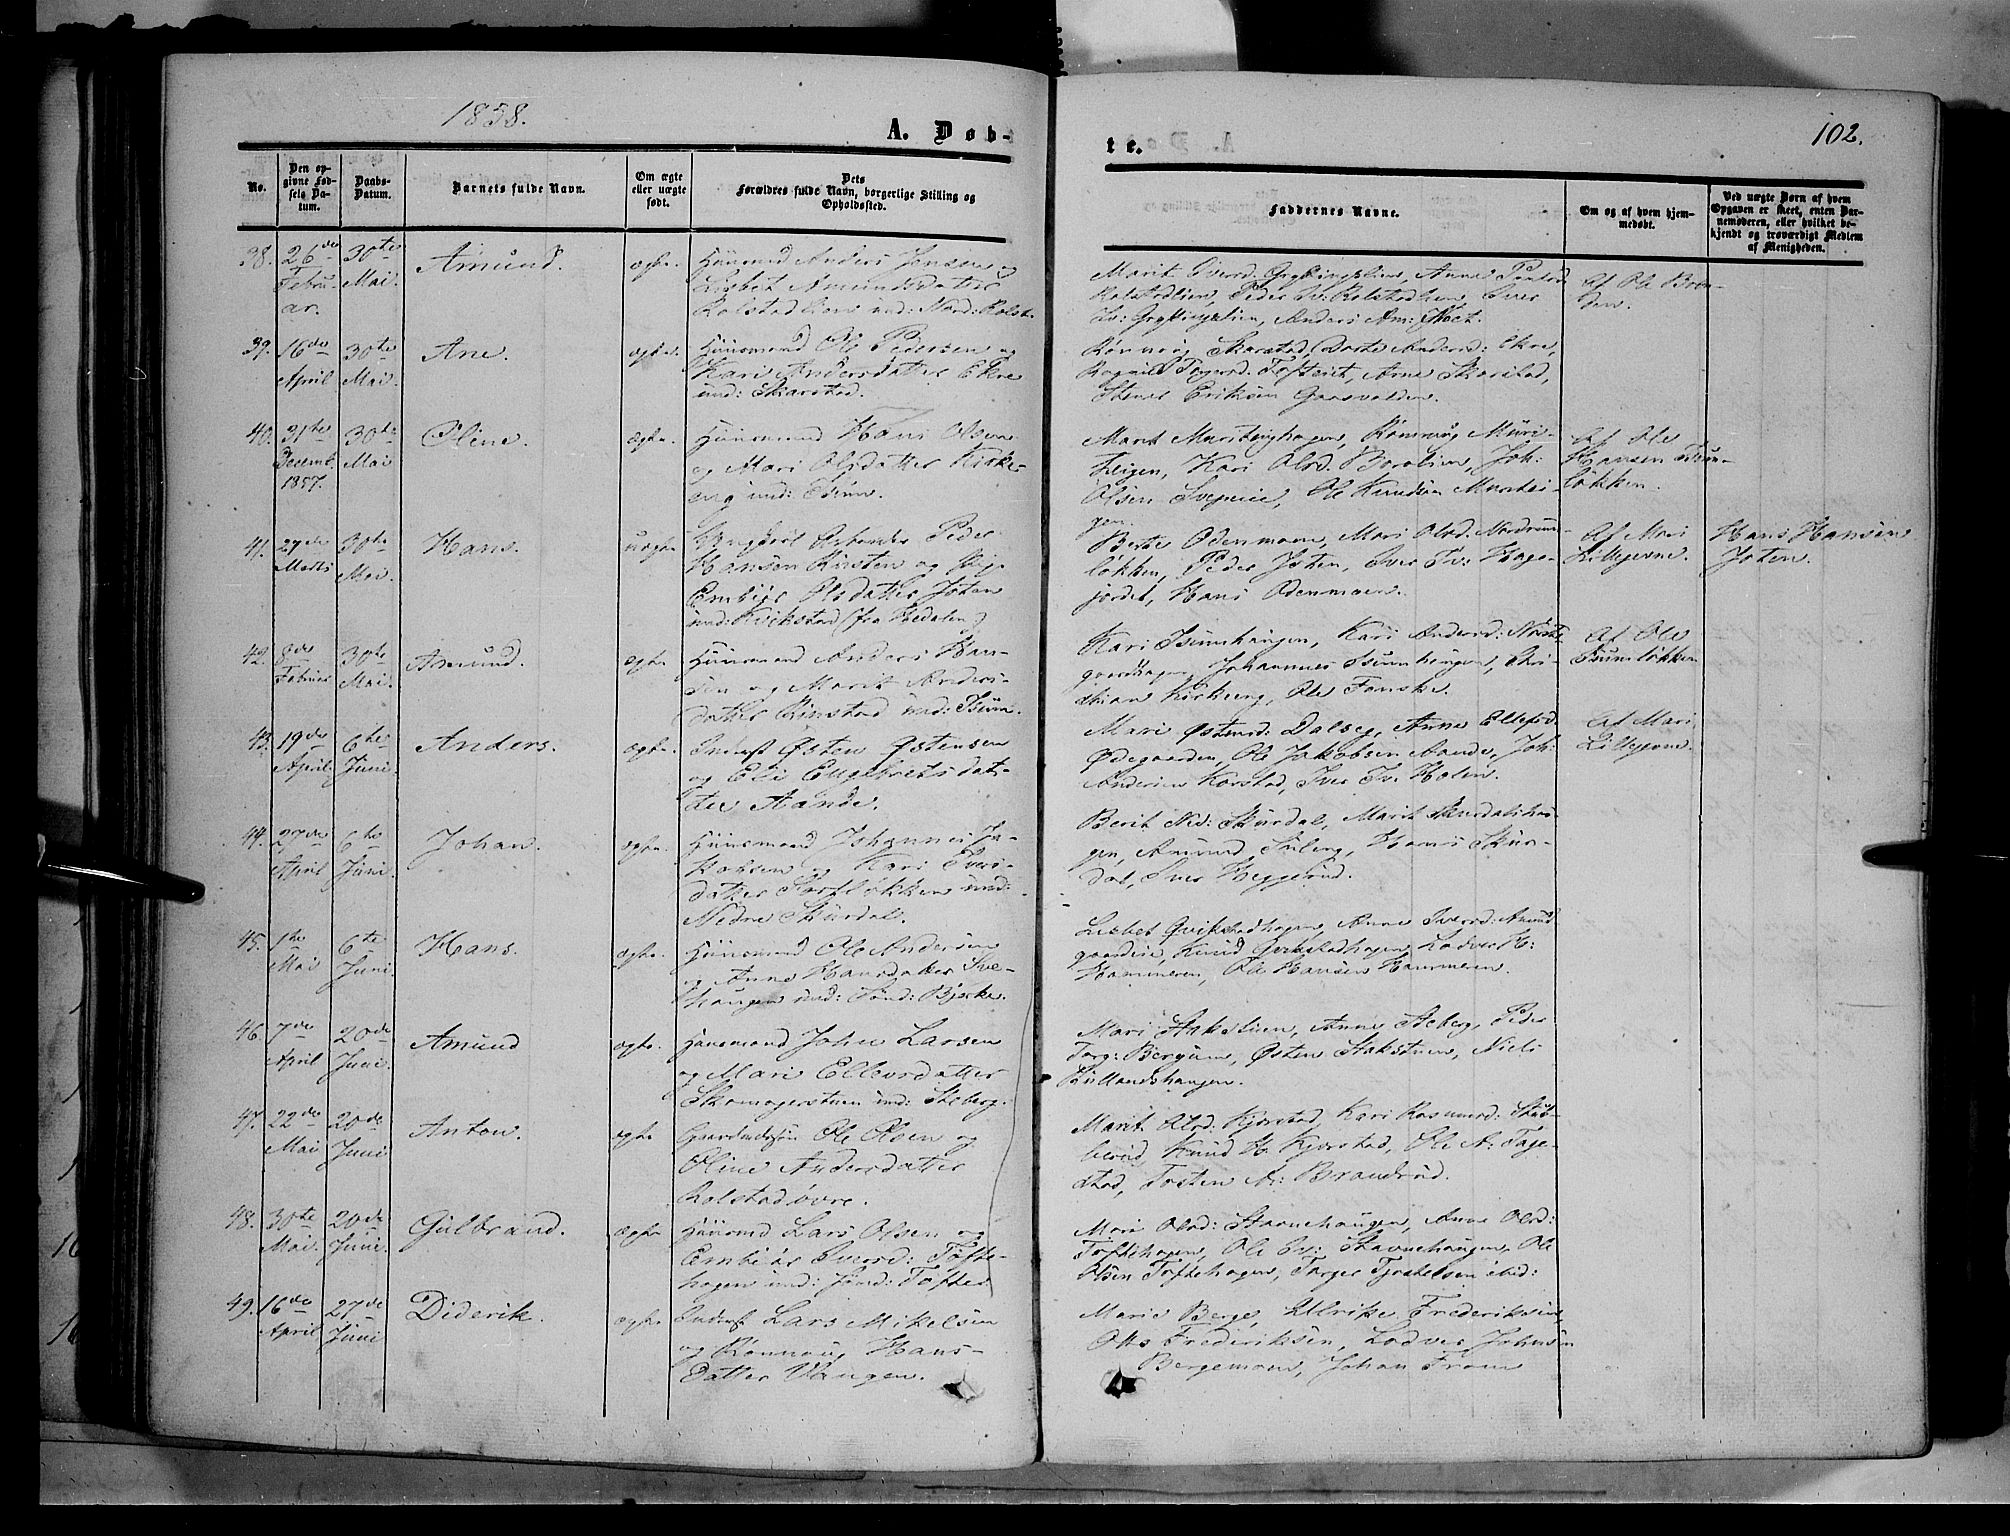 1858.
A. Døb-
te.
102.
No.
Den op-
givne Fød-
sels Da-
tum.
Daabs-
Datum.
Barnets fulde Navn.
Om ægte
eller uægte
født.
Dets
Forældres fulde Navn, borgerlige Stilling og
Opholdssted.
Faddernes Navne.
Om og af hvem hjem-
medøbt.
Ved uægte Børn af hvem
Opgaven er skeet, enten Bar-
nemoderen, eller hvilket be-
kjendt og troværdigt Medlem
af Menigheden.
38.
26de
Febru-
ar.
30te
Mai.
Amund.
ægte.
Huusmand Anders Jensen og
Lisbet Amundsdatter
Kolstad und: Nord: Kolst.
Marit Iversd:
Peder Iv: Kolstadlien, Iver
Anders Am:
Af Ole
39.
16de
April
30te
Mai.
Ane.
ægte.
Huusmand Ole Pedersen og
Kari Andersdatter Ekre
und: Skarstad.
Rønnaug Skarstad, Dorte Andersd: Ekre,
Arne Skarstad,
Stener Eriksen
40.
31te
Decemb.
1857.
30te
Mai
Oline.
ægte.
Huusmand Hans Olsen
og Mari Olsdatter Kirke-
eng und: Isum.
Marit Rønnaug Muri-
teigen, Kari Olsd. Joh:
Olsen Ole Knudsen Muritei-
gen.
Af Ole
Hansen Isum-
løkken.
41.
27de
Marts
30te
Mai.
Hans.
uægte.
Ungkarl Arbeider Peder
Hansen Kirsten og Pige
Embjør Olsdatter Joten
und: Kvikstad (fra Hedalen)
Berthe Odenmoen, Mari Olsd. Nordrum-
løkken, Peder Joten, Iver Iv: Hage-
jordet, Hans Odenmoen.
Af Mari
Lillegevne.
Hans Hansen
Joten.
42.
8de
Februar
30te
Mai.
Amund.
ægte.
Huusmand Anders Han-
sen og Marit Anders-
datter Rimstad und: Isum.
Kari Isumhaugen, Kari Andersd:
Johannes Isumhaugen, Chri-
stian Kirkeeng, Ole Fanske.
Af Ole
Isumløkken
43.
19de
April.
6te
Juni.
Anders.
ægte.
Inderst Østen Østensen
og Eli Engebretsdat-
ter Aande.
Mari Østensd: Dalseg, Anne Ellefsd.
Ødegaarden, Ole Jakobsen Aande, Joh:
Andersen Korstad, Iver Iv: Holen.
Af Mari
Lillegevne.
44.
27de
April
6te
Juni.
Johan.
ægte.
Huusmand Johannes Ja-
kobsen og Kari Ivers-
datter Torsløkken und:
Nedre Skurdal.
Berit Ned: Skurdal, Marit Skurdalshau-
gen, Amund Hans Skur-
dal, Iver Heggerud.
45.
1te
Mai
6te
Juni.
Hans.
ægte.
Huusmand Ole Andersen
og Anne Hansdatter Sve-
haugen und: Sønd: Bjerke.
Lisbet Qvikstadhagen, Anne Iversd: Amund
Knud Qvikstadhagen, Lodver H:
Hammeren, Ole Hansen Hammeren.
46.
7de
April
20de
Juni.
Amund
ægte.
Huusmand John Larsen
og Mari Ellevsdatter
Skomagerstuen und: Steberg.
Mari Stakstuen, Anne Steberg, Peder
Torg: Bergum, Østen Stakstuen, Niels
47.
22de
Mai
20de
Juni
Anton.
ægte
Gaardmand Ole Olsen og
Oline Andersdatter
Kolstad øvre.
Marit Olsd. Kjorstad, Kari Rasmusd:
Knud H. Kjorstad, Ole A: Tage-
stad, Tosten A: Brandrud.
48.
30te
Mai.
20de
Juni.
Gulbrand.
ægte
Huusmd Lars Olsen og
Embjør Iversd: Tofte-
hagen und: Sønd: Tofte.
Mari Olsd: Stavnehaugen, Anne Olsd:
Toftehagen, Ole Iv: Stavnehaugen, Ole
Olsen Toftehagen, Torger Tjostelsen ibid:
49.
16de
April
27de
Juni
Diderik.
ægte.
Inderst Lars Mikelsen
og Rønnaug Hans-
datter Vangen.
Marie Berge, Ulrike Frederiksen,
Otto Frederiksen, Lodver Johnsen
Bergemoen, Johan From